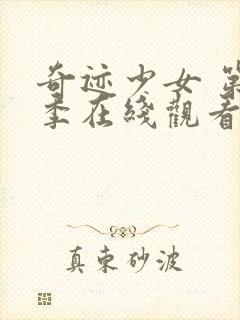 奇迹少女 第
季在綫觀看
真束砂波